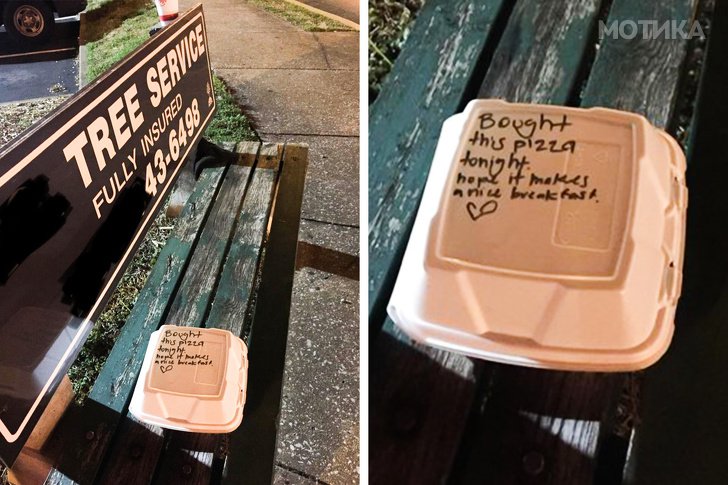 TREE SERVICE
FULLY INSURED
43-6498
Bought
this pizza
tonight.
hope it makes
a nice breakfast.
♡
МОТИКА
Bought
this pizza
tonight.
hope it makes
a nice breakfast.
♡